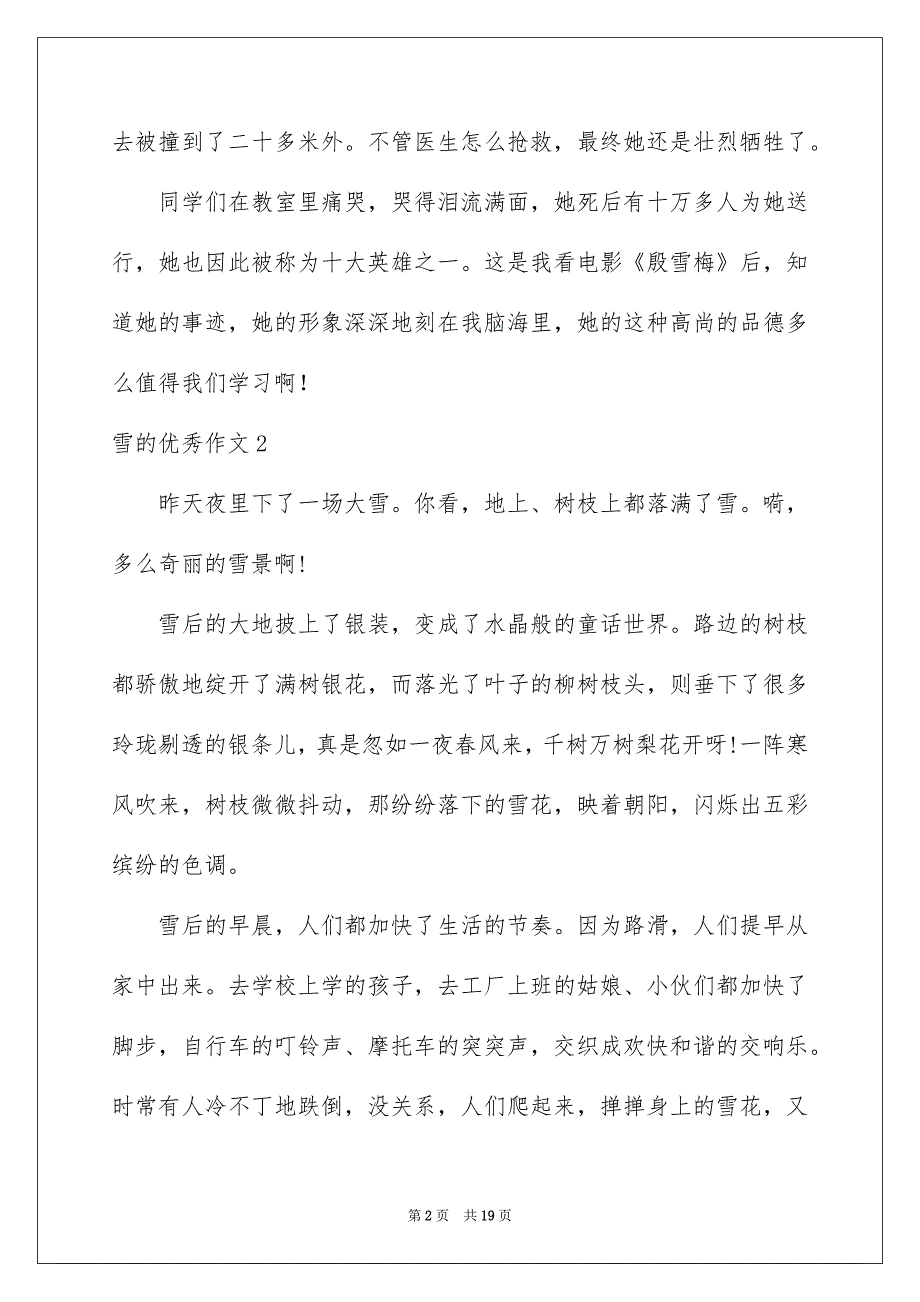 去被撞到了二十多米外。不管医生怎么抢救，最终她还是壮烈牺牲了。
同学们在教室里痛哭，哭得泪流满面，她死后有十万多人为她送
行，她也因此被称为十大英雄之一。这是我看电影《殷雪梅》后，知
道她的事迹，她的形象深深地刻在我脑海里，她的这种高尚的品德多
么值得我们学习啊！
雪的优秀作文2
昨天夜里下了一场大雪。你看，地上、树枝上都落满了雪。嗬，
多么奇丽的雪景啊!
雪后的大地披上了银装，变成了水晶般的童话世界。路边的树枝
都骄傲地绽开了满树银花，而落光了叶子的柳树枝头，则垂下了很多
玲珑剔透的银条儿，真是忽如一夜春风来，千树万树梨花开呀!一阵寒
风吹来，树枝微微抖动，那纷纷落下的雪花，映着朝阳，闪烁出五彩
缤纷的色调。
雪后的早晨，人们都加快了生活的节奏。因为路滑，人们提早从
家中出来。去学校上学的孩子，去工厂上班的姑娘、小伙们都加快了
脚步，自行车的叮铃声、摩托车的突突声，交织成欢快和谐的交响乐。
时常有人冷不丁地跌倒，没关系，人们爬起来，掸掸身上的雪花，又
第 2 页 共 19 页